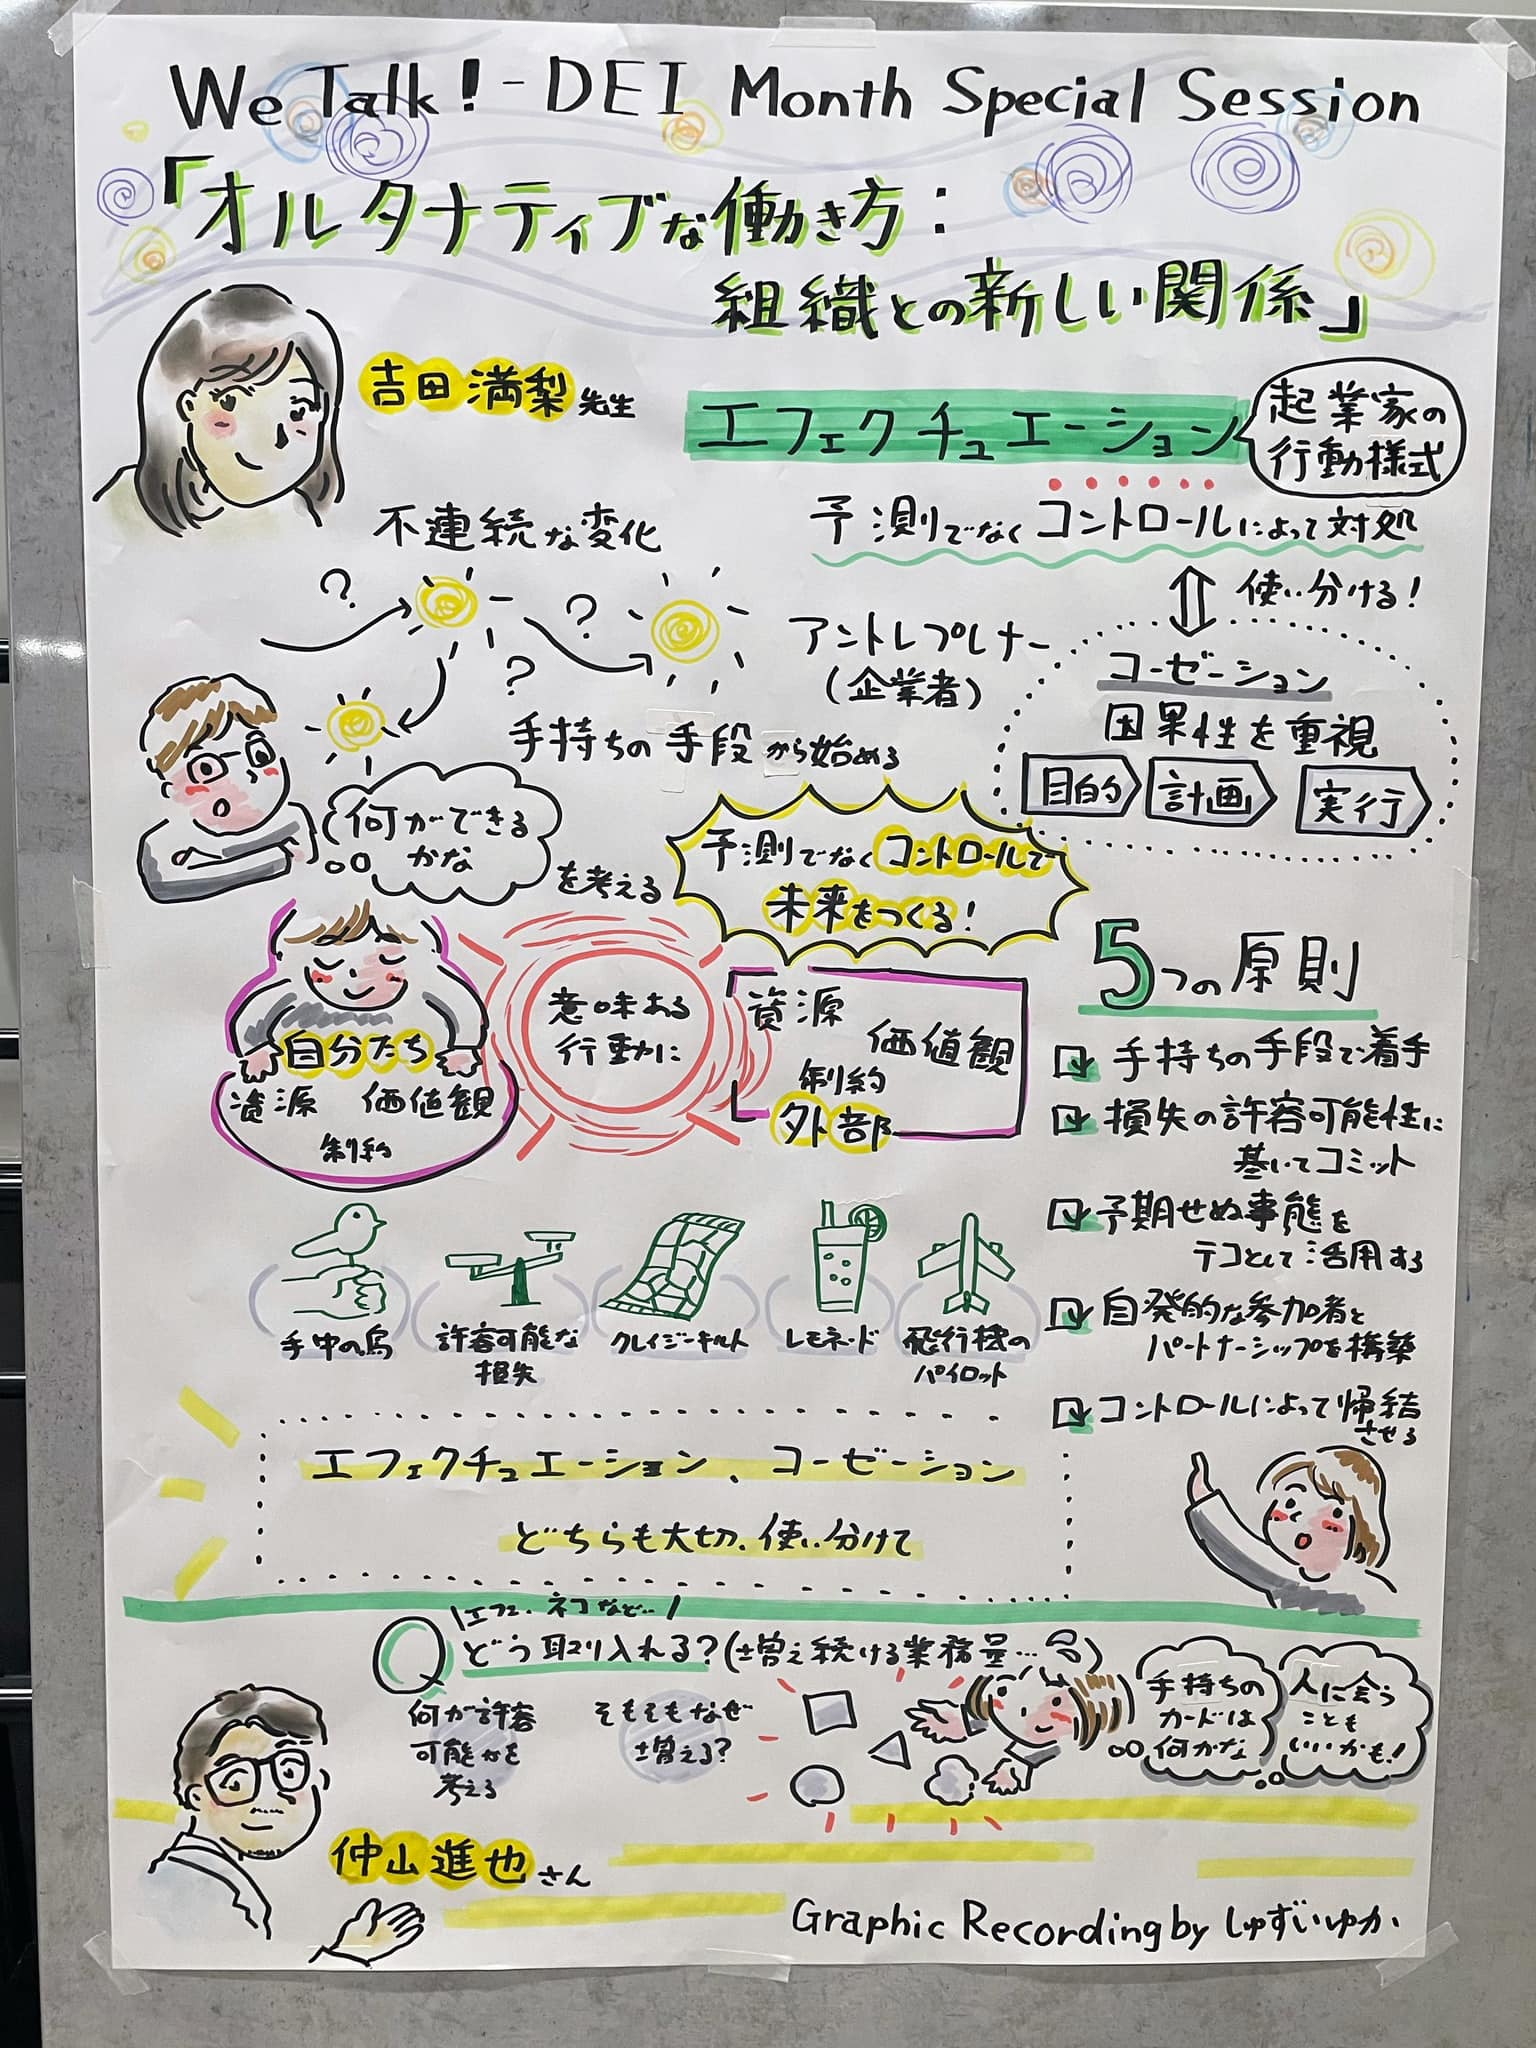 We Talk! - DEI Month Special Session
「オルタナティブな働き方:
組織との新しい関係」
吉田満梨先生
エフェクチュエーション
起業家の
行動様式
予測でなくコントロールによって対処
使い分ける!
不連続な変化
?
?
?
アントレプレナー
(企業者)
コーゼーション
因果性を重視
目的
計画
実行
手持ちの手段から始める
何ができる
かな
を考える
予測でなくコントロールで
未来をつくる!
自分たち
資源 価値観
制約
意味ある
行動に
資源
価値観
制約
外部
5つの原則
手持ちの手段で着手
損失の許容可能性に
基いてコミット
予期せぬ事態を
テコとして活用する
自発的な参加者と
パートナーシップを構築
コントロールによって帰結
させる
手中の鳥
許容可能な
損失
クレイジーキルト
レモネード
飛行機の
パイロット
エフェクチュエーション、コーゼーション
どちらも大切、使い分けて
\エフェ、ネコなど…/
Q どう取り入れる?(増え続ける業務量…)
何が許容
可能かを
考える
そもそもなぜ
増える?
手持ちの
カードは
何かな
人に会う
ことも
いいかも!
仲山進也さん
Graphic Recording by しゅずいゆか